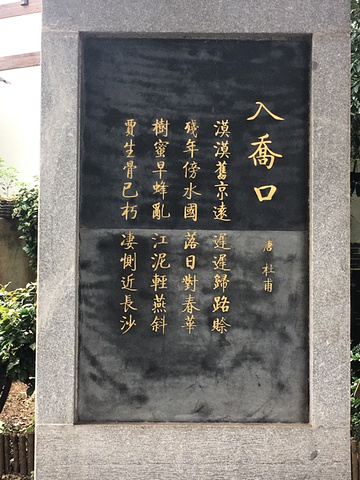 入喬口
唐 杜甫
漠漠舊京遠 遲遲歸路賒
殘年傍水國 落日對春華
樹蜜早蜂亂 江泥軽燕斜
賈生骨已朽 凄惻近長沙